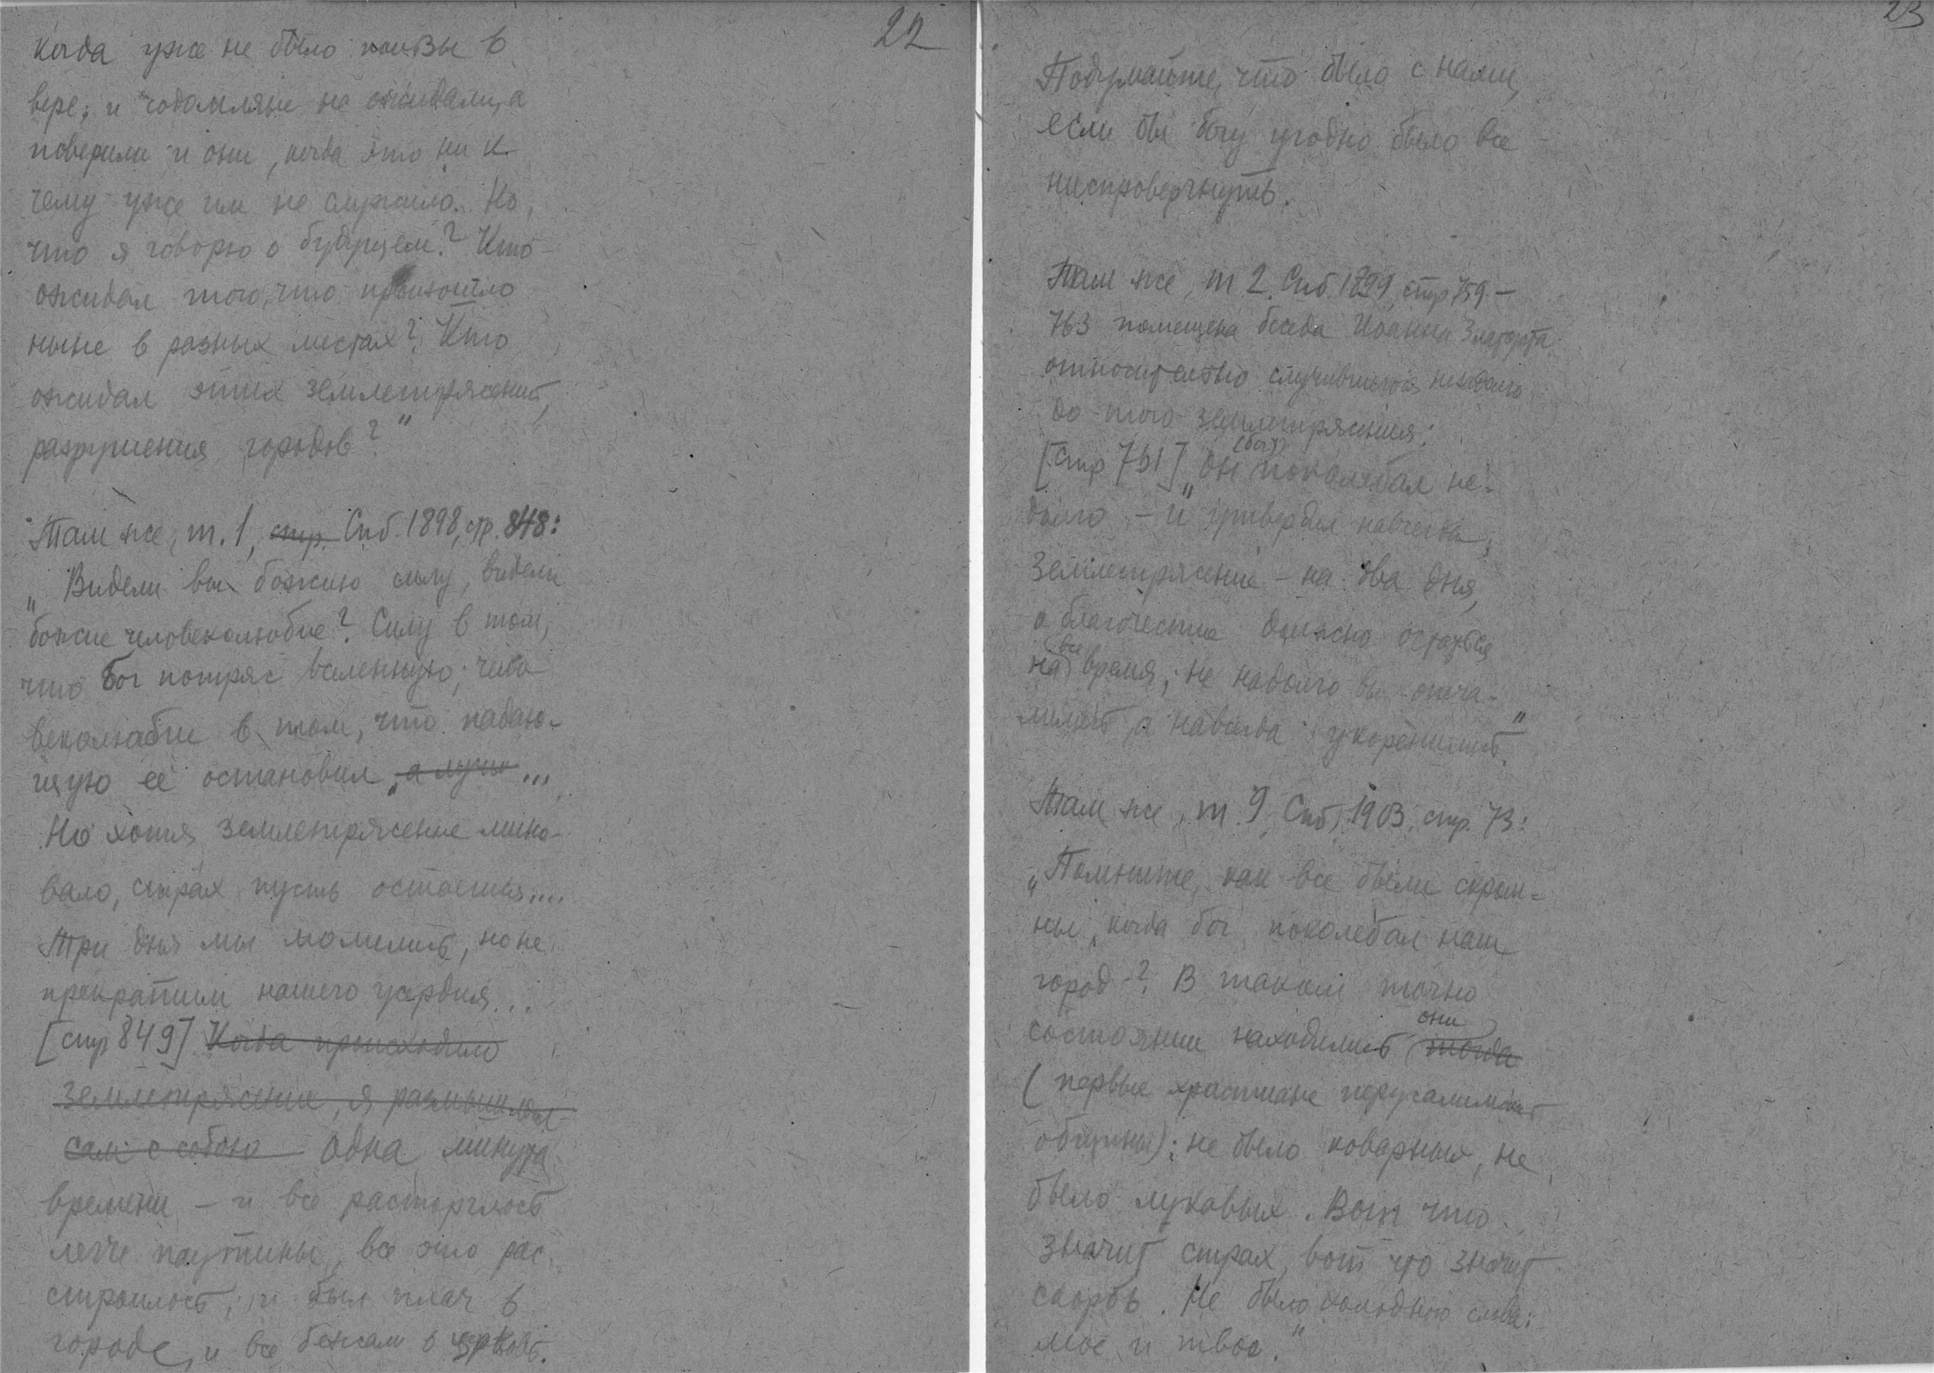 22
когда уже не было пользы в
вере; и содомляне не ожидали, а
поверили и они, когда это ни к
чему уже им не служило. Но,
что я говорю о будущем? Кто
ожидал того, что произошло
ныне в разных местах? Кто
ожидал этих землетрясений,
разрушения городов?"
Там же, т. 1, стр. Спб. 1898, стр. 848:
„Видели вы божию силу, видели
божие человеколюбие? Силу в том,
что бог потряс вселенную; чело
веколюбие в том, что падаю-
щую ее остановил, а лучше...
Но хотя землетрясение мино-
вало, страх пусть остается....
Три дня мы молились, но не
прекратим нашего усердия...
[стр 849] Когда происходило
землетрясение, я размышлял
сам с собою Одна минута
времени – и все расторглось
легче паутины, все это рас-
строилось; и был плач в
городе, и все бежали в церковь.
23
Подумайте, что было с нами,
если бы богу угодно было все
ниспровергнуть.
Там же, т 2. Спб 1899, стр 759 –
763 помещена беседа Иоанна Златоуста
относительно случившегося незадолго
до того землетрясения:
(бог)
[стр 761] „Он поколебал не-
долго – и утвердил навсегда;
землетрясение – на два дня,
а благочестие должно остаться
все
на время; не надолго вы опеча-
лились, а навсегда укоренились."
Там же, т. 9, Спб, 1903, стр. 73:
„Помните, как все были скром-
ны, когда бог поколебал наш
город? В таком точно
они
состоянии находились тогда
(первые христиане иерусалимской
общины): не было коварных, не
было лукавых. Вот что
значит страх, вот что значит
скорбь. Не было холодного слова:
мое и твое."